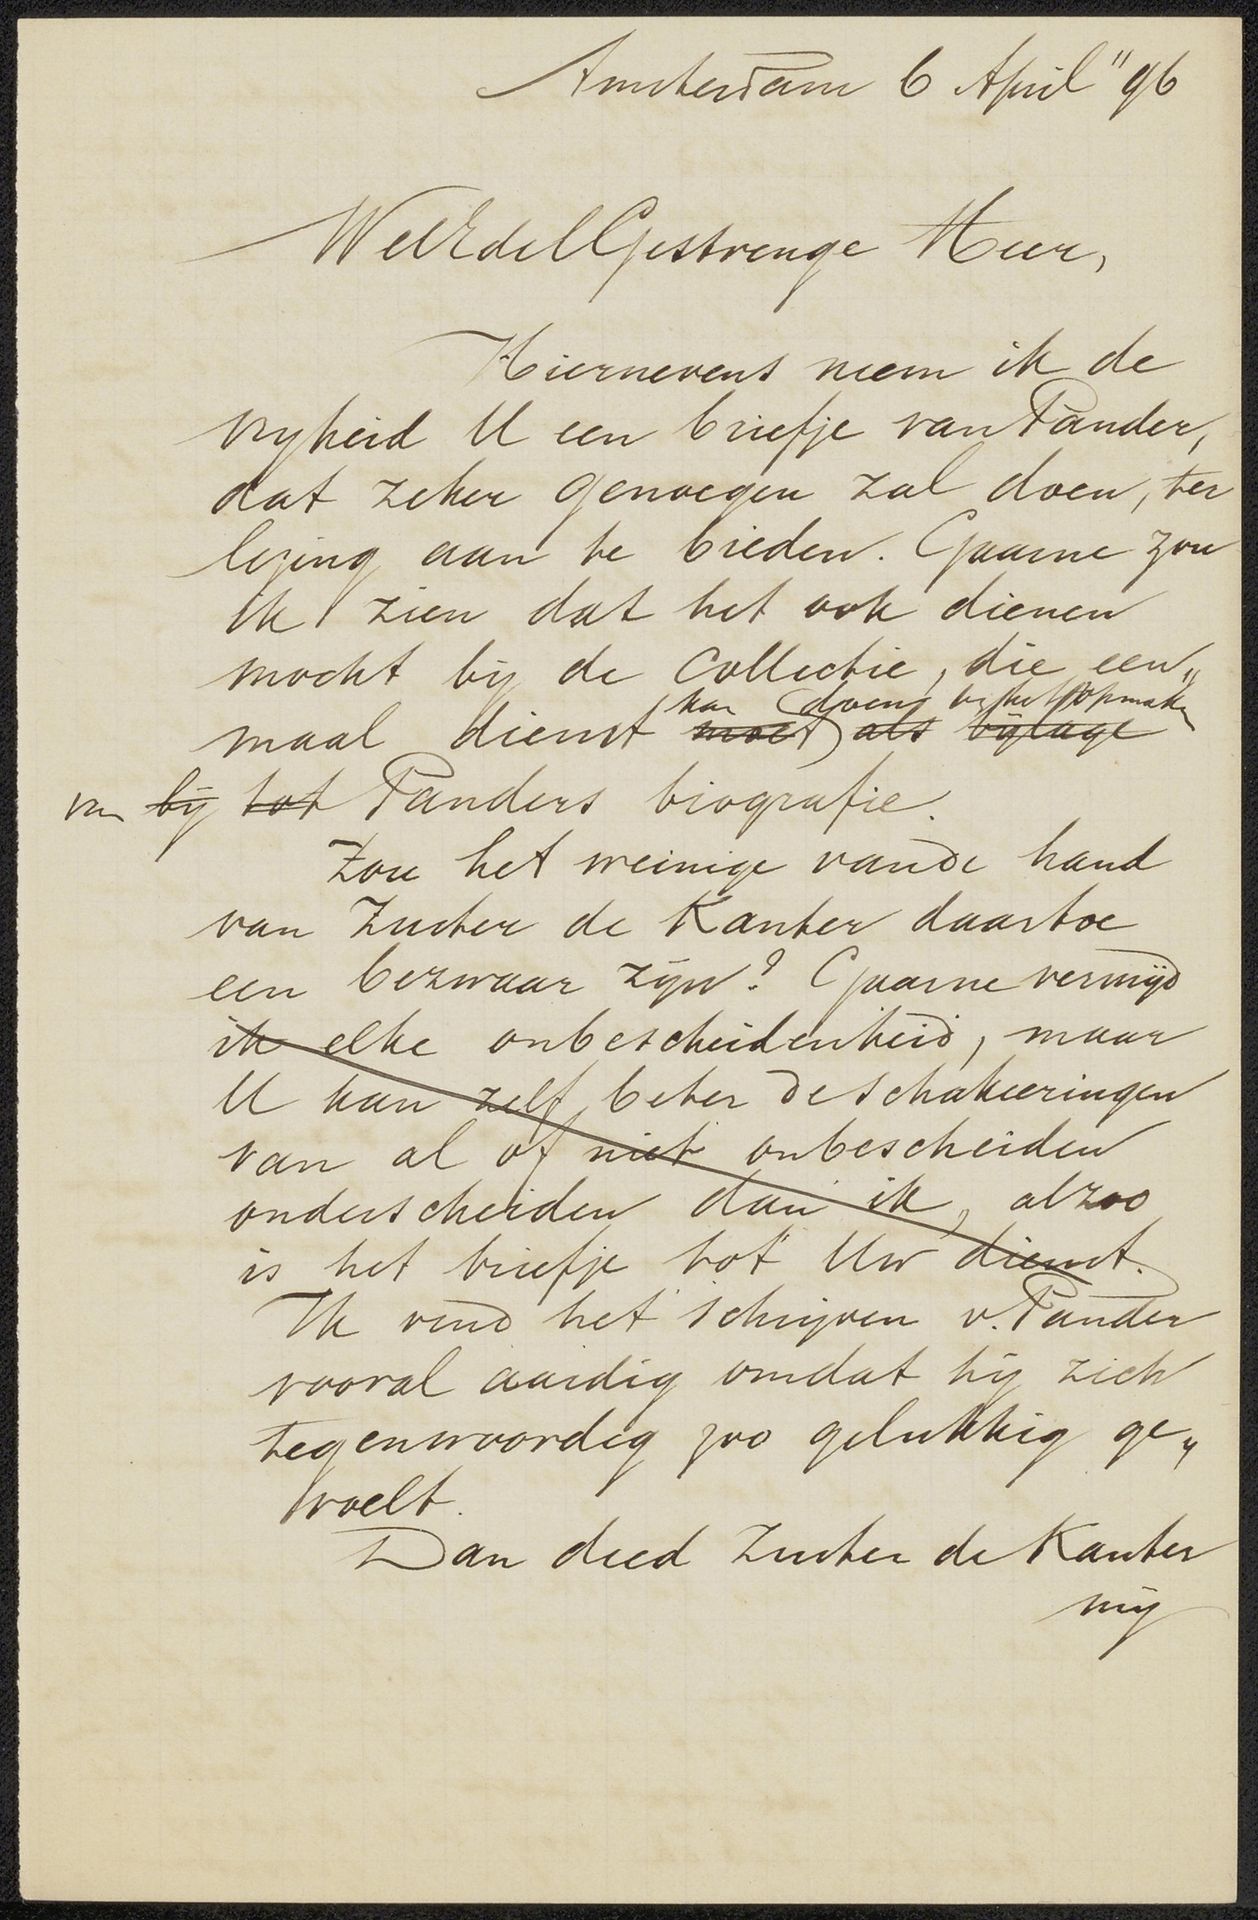 Amsterdam 6 April "96
WelEdelGestrenge Heer,
Hiernevens neem ik de
vryheid U een briefje van Pander,
dat zeker genoegen zal doen, ter
lezing aan te bieden. Gaarne zou
ik zien dat het ook dienen
mocht bij de Collectie, die een„
kan doen by het opmaken
maal dienst moet als bijlage
van bij tot Panders biografie.
Zou het weinige van de hand
van Zuster de Kanter daartoe
een bezwaar zijn? Gaarne vermijd
ik elke onbescheidenheid, maar
U kan zelf beter de schakeeringen
van al of niet onbescheiden
onderscheiden dan ik, alzoo
is het briefje tot Uw dienst.
Ik vind het schrijven v. Pander
vooral aardig omdat hij zich
tegenwoordig zoo gelukkig ge„
voelt.
Dan deed Zuster de Kanter
mij